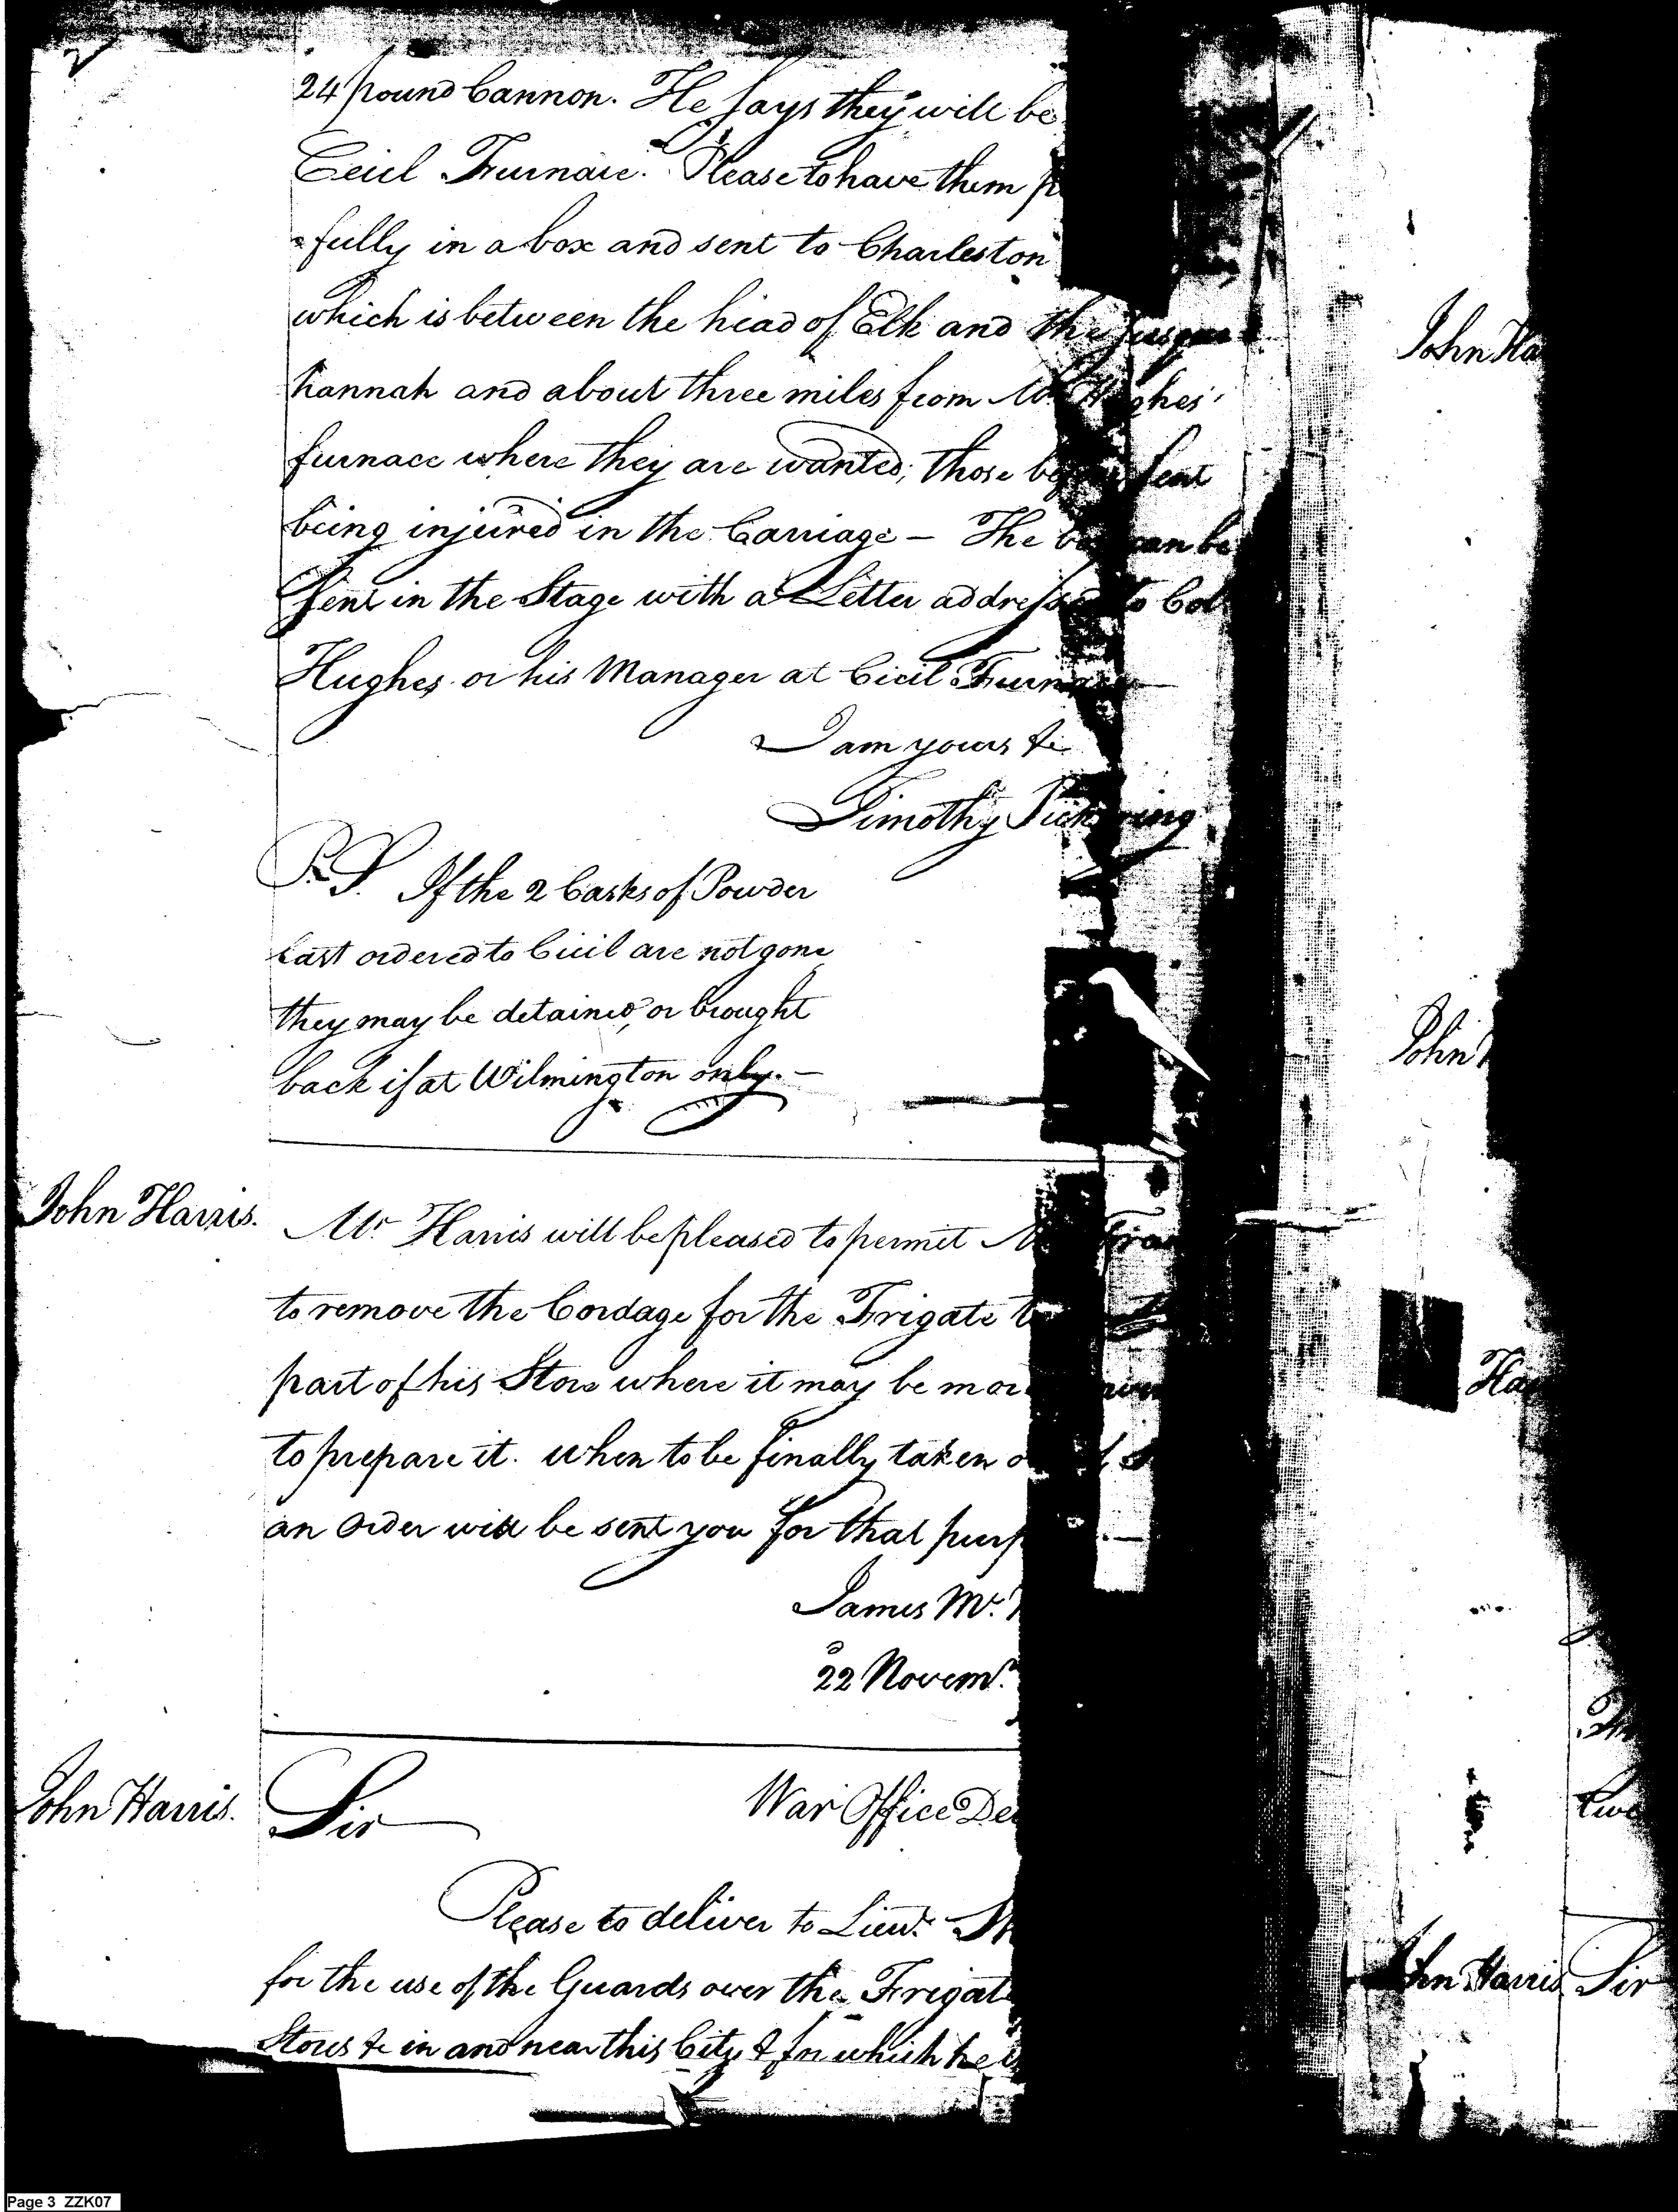 2
24 pound Cannon. He says they will be
Cecil Furnace. Please to have them
fully in a box and sent to Charleston
which is between the head of Elk and the Susque
hannah and about three miles from Mr. Hughes'
furnace where they are wanted; those before sent
being injured in the Carriage – The box can be
sent in the Stage with a Letter addressed to Col
Hughes or his Manager at Cecil Furnace
I am yours &c
Timothy Pickering
P.S. If the 2 Casks of Powder
last ordered to Cecil are not gone
they may be detained, or brought
back if at Wilmington only. –
John Harris.
Mr Harris will be pleased to permit
to remove the Cordage for the Frigate
part of his Store where it may be
to prepare it. when to be finally taken
an Order will be sent you for that
James Mc.
22 Novemr.
John Harris.
Sir
War Office
Please to deliver to Lieut.
for the use of the Guards over the
Stores &c in and near this City & for which he
John
John
John Harris
Sir
Page 3 ZZK07